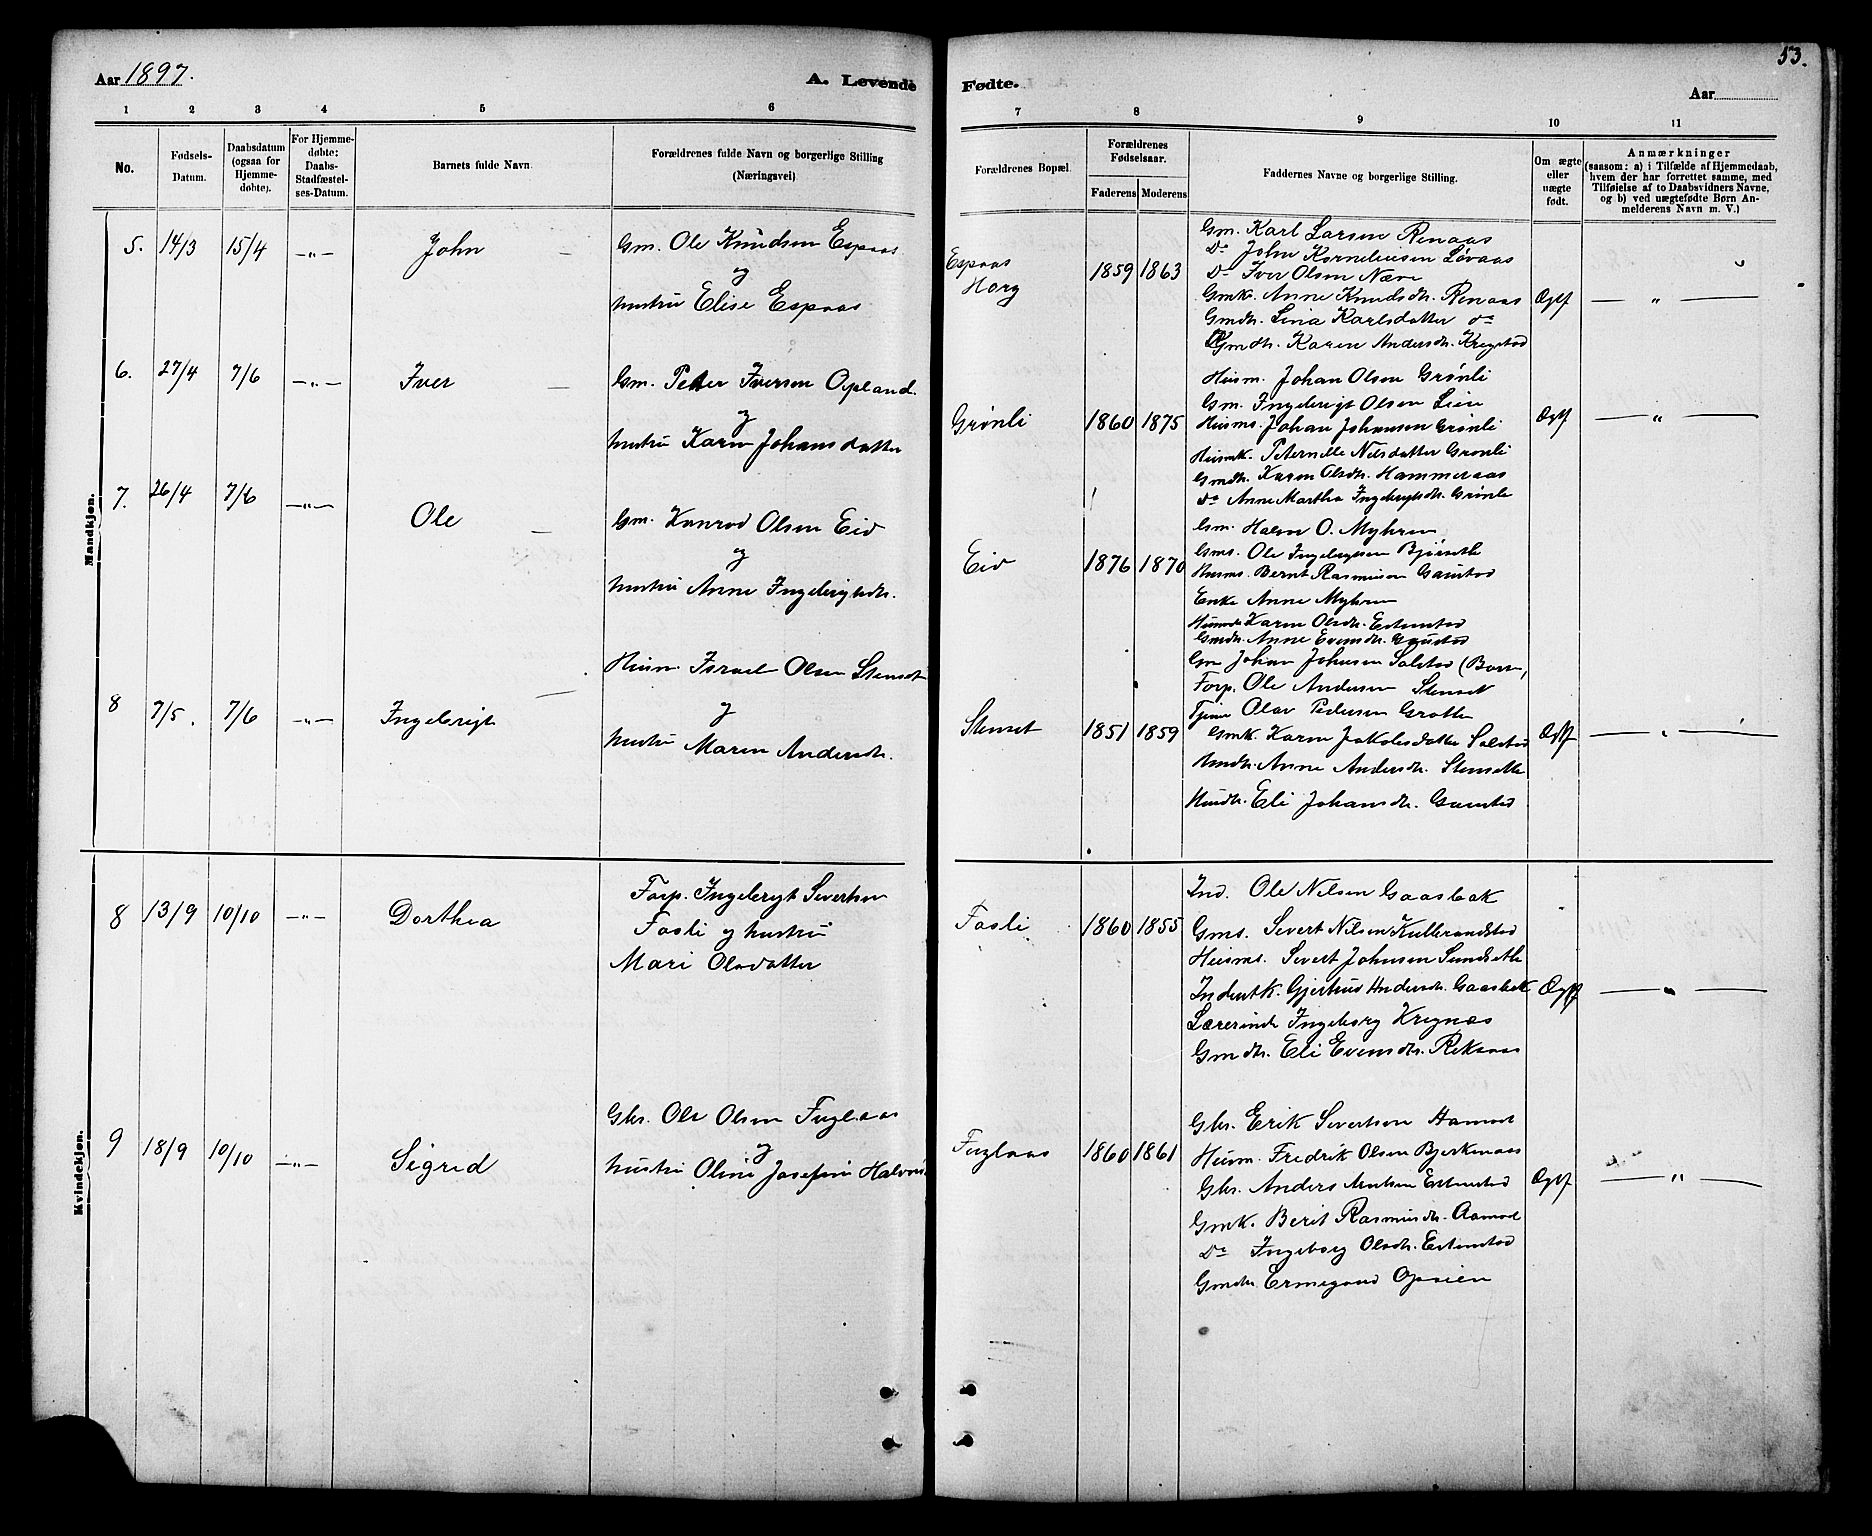 Aar 1897.
A. Levende
Fødte.
53.
Aar
1
2
3
4
5
6
7
8
9
10
11
No.
Fødsels-
Datum.
Daabsdatum
(ogsaa for
Hjemme-
døbte).
For Hjemme-
døbte:
Daabs-
Stadfæstel-
ses-Datum.
Barnets fulde Navn.
Forældrenes fulde Navn og borgerlige Stilling
(Næringsvei)
Forældrenes Bopæl.
Forældrenes
Fødselsaar.
Faderens
Moderens
Faddernes Navne og borgerlige Stilling.
Om ægte
eller
uægte
født.
Anmærkninger
(saasom: a) i Tilfælde af Hjemmedaab,
hvem der har forrettet samme, med
Tilføielse af to Daabsvidners Navne,
og b) ved uægtefødte Børn An-
melderens Navn m. V.)
Mandkjøn.
5. 14/3 15/4 —„— John
Gm. Ole Knudsen Espaas
og
hustru Elise Espaas
Espaas
Horg
1859 1863
Gm. Karl Larsen Renaas
Do John Korneliussen Løvaas
Do Iver Olsen Næve
Gmk. Anne Knudsdtr. Renaas
Gmdtr. Lina Karlsdatter do
Gmdtr. Karen Andersdtr. Kregstad
Ægtef — „ —
6. 27/4 7/6 —„— Iver
Gm. Peter Iversen Opland.
og
hustru Karen Johansdatter
Grønli
1860 1875
Husm. Johan Olsen Grønli
Gm. Ingebrigt Olsen Lein
Husms. Johan Johansen Grønli
Husmk. Peternelle Nilsdatter Grønli
Gmdtr. Karen Olsdtr. Hammeraas
Do Anne Martha Ingebrigtsdtr. Grønli
Ægtf — „ —
7. 26/4 7/6 —„— Ole
Gm. Konrad Olsen Eid
og
hustru Anne Ingebrigtsdtr.
Eid
1876 1870
Gm. Halvor O. Myhren
Gms. Ole Ingebrigtsen Bjørseth
Husms. Bernt Rasmussen Gaustad
Enke Anne Myhren
Karen Olsdtr. Estenstad
Gmdtr. Anne Evensdtr. Gaustad
8 7/5. 7/6 —„— Ingebrigt
Husm. Israel Olsen Stenset
og
hustru Maren Andersdtr.
Stenset
1851 1859
Gm Johan Johnsen Solstad
Forp. Ole Andersen Stenset
Tjener Olav Pedersen Grotte
Gmk. Karen Jakobsdatter Solstad
Anne Andersdtr. Stensette
Husdtr. Eli Johansdtr. Gaustad
Ægtf — „ —
Kvindekjøn.
8 13/9 10/10 —„— Dorthea
Forp. Ingebrigt Sivertsen
Fosli og hustru
Mari Olsdatter
Fosli
1860 1855
Ind. Ole Nilsen Gaasbak
Gms. Sivert Nilsen Kullerandstad
Husms. Sivert Johnsen Sundsethe
Inderstk. Gjertrud Andersdtr. Gaasbak
Lærerinde Ingeborg Kregnæs
Gmdtr. Eli Evensdtr. Reksaas
Ægtf — „ —
9 18/9 10/10 —„— Sigrid
Gbr. Ole Olsen Fuglaas
og
hustru Oline Josefine
Fuglaas
1860 1861
Gbr. Erik Sivertsen
Husm. Fredrik Olsen Bjerkenaas
Gbr. Anders Arntsen Estenstad
Gmk. Berit Rasmusdtr. Aamod
Do Ingeborg Olsdtr. Estenstad
Gmdtr. Ermegaard Opsien
Ægtf — „ —